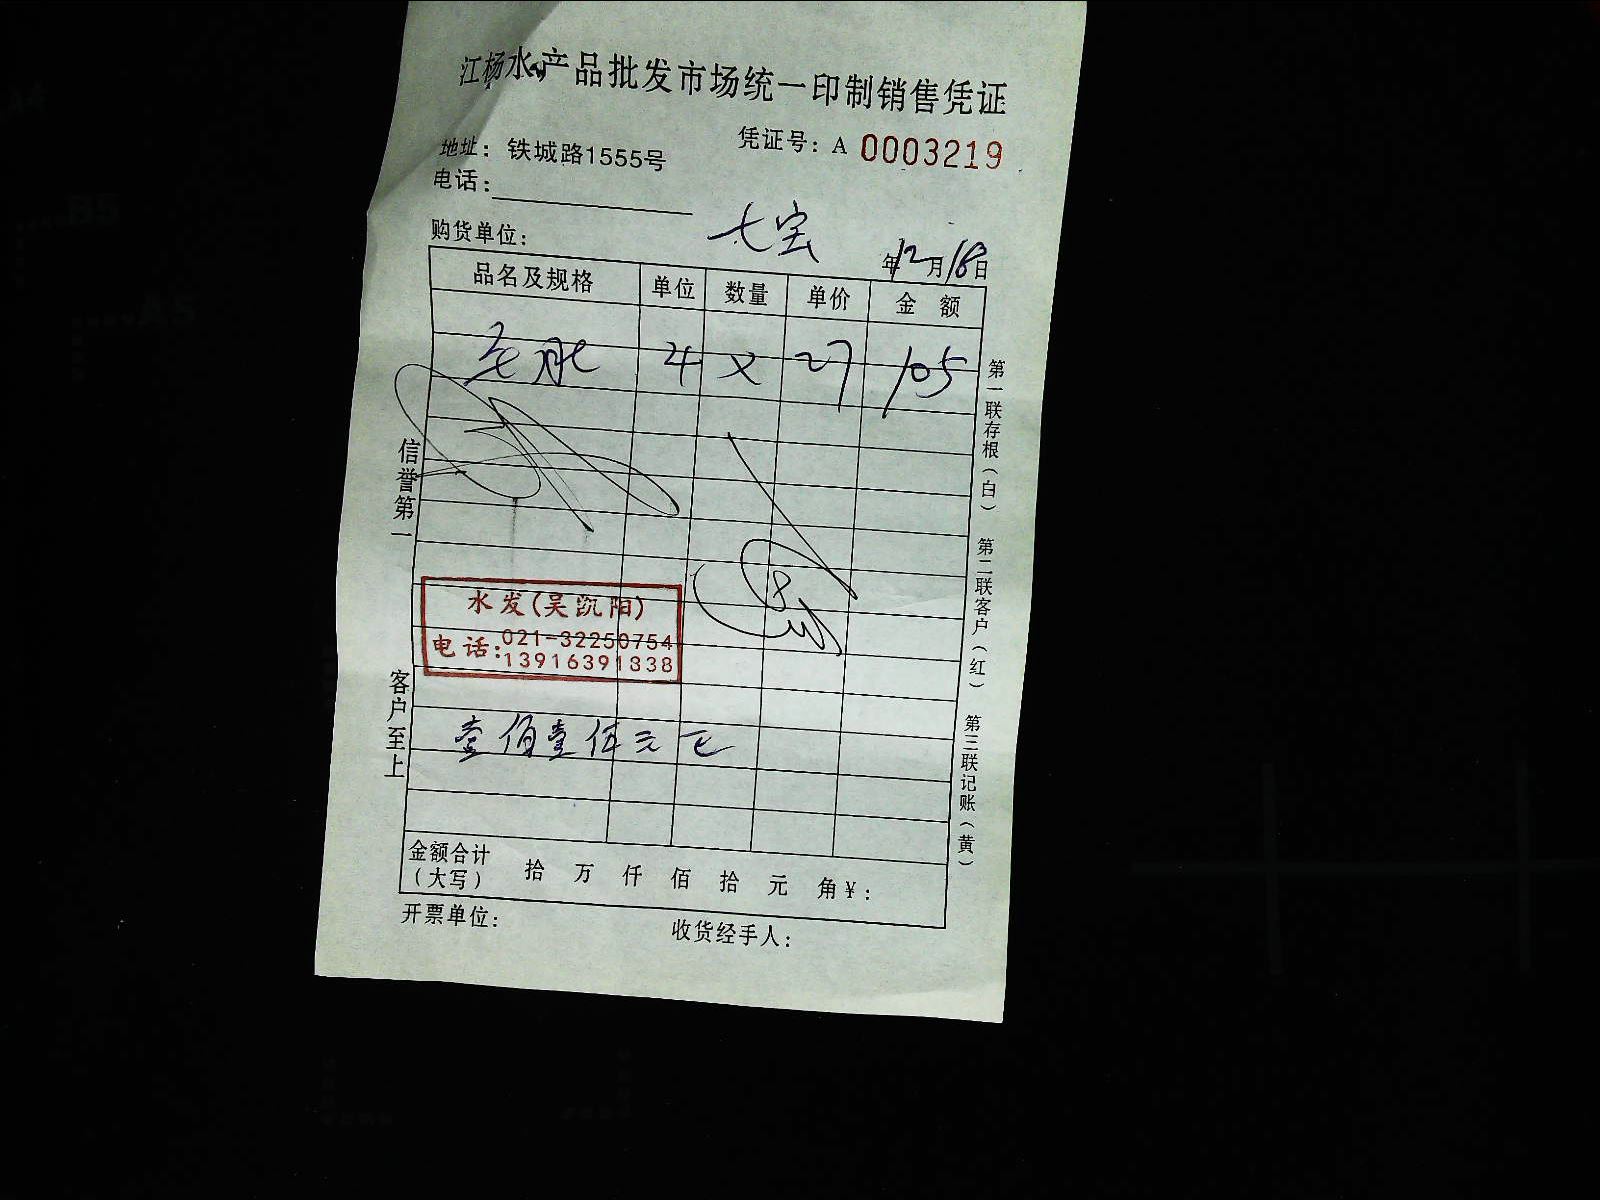 江杨水产品批发市场统一印制销售凭证
凭证号：A 0003219
地址：铁城路1555号
电话：
购货单位： 七宝
年12月18日
品名及规格 单位 数量 单价 金 额
4 × 27 105
信誉第一
客户至上
水发(吴凯阳)
电话：021-32250754
13916391838
壹佰壹伍元
金额合计（大写） 拾 万 仟 佰 拾 元 角￥：
开票单位： 收货经手人：
第一联存根（白） 第二联客户（红） 第三联记账（黄）